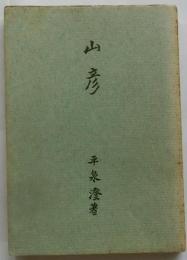 山彦
平泉澄著